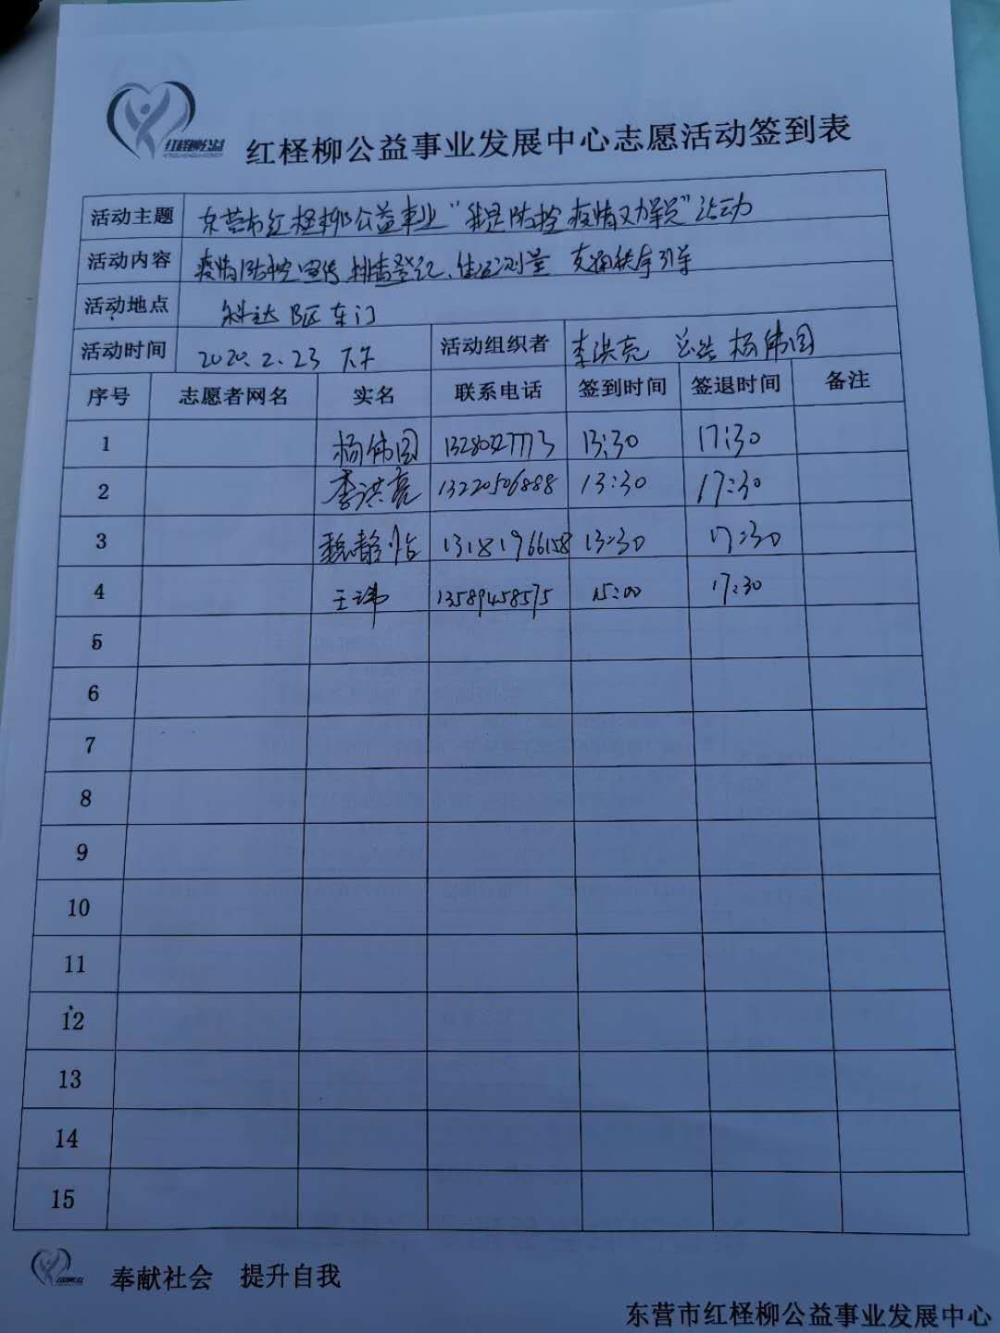 红柽柳公益
红柽柳公益事业发展中心志愿活动签到表
活动主题 东营市红柽柳公益事业"我是防控疫情义务员"活动
活动内容 疫情防控宣传、排查登记、体温测量 交通秩序引导
活动地点 科达B区东门
活动时间 2020.2.23 下午 活动组织者 李洪亮 杨伟国
序号 志愿者网名 实名 联系电话 签到时间 签退时间 备注
1 杨伟国 13280327773 13:30 17:30
2 李洪亮 13220506888 13:30 17:30
3 魏静怡 13181966158 13:30 17:30
4 王玮 13589458575 15:00 17:30
5
6
7
8
9
10
11
12
13
14
15
奉献社会 提升自我
东营市红柽柳公益事业发展中心